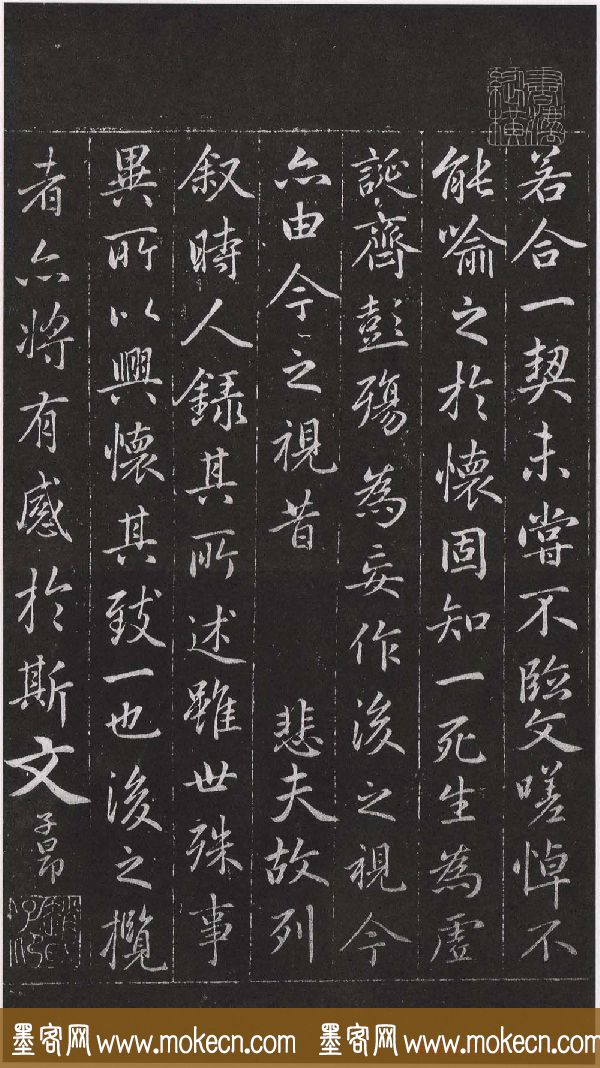 若合一契未嘗不臨文嗟悼不
能喻之於懷固知一死生為虛
誕齊彭殤為妄作後之視今
亦由今之視昔 悲夫故列
叙時人錄其所述雖世殊事
異所以興懷其致一也後之攬
者亦將有感於斯文
子昂
墨客网 www.mokecn.com 墨客网 www.mokecn.com